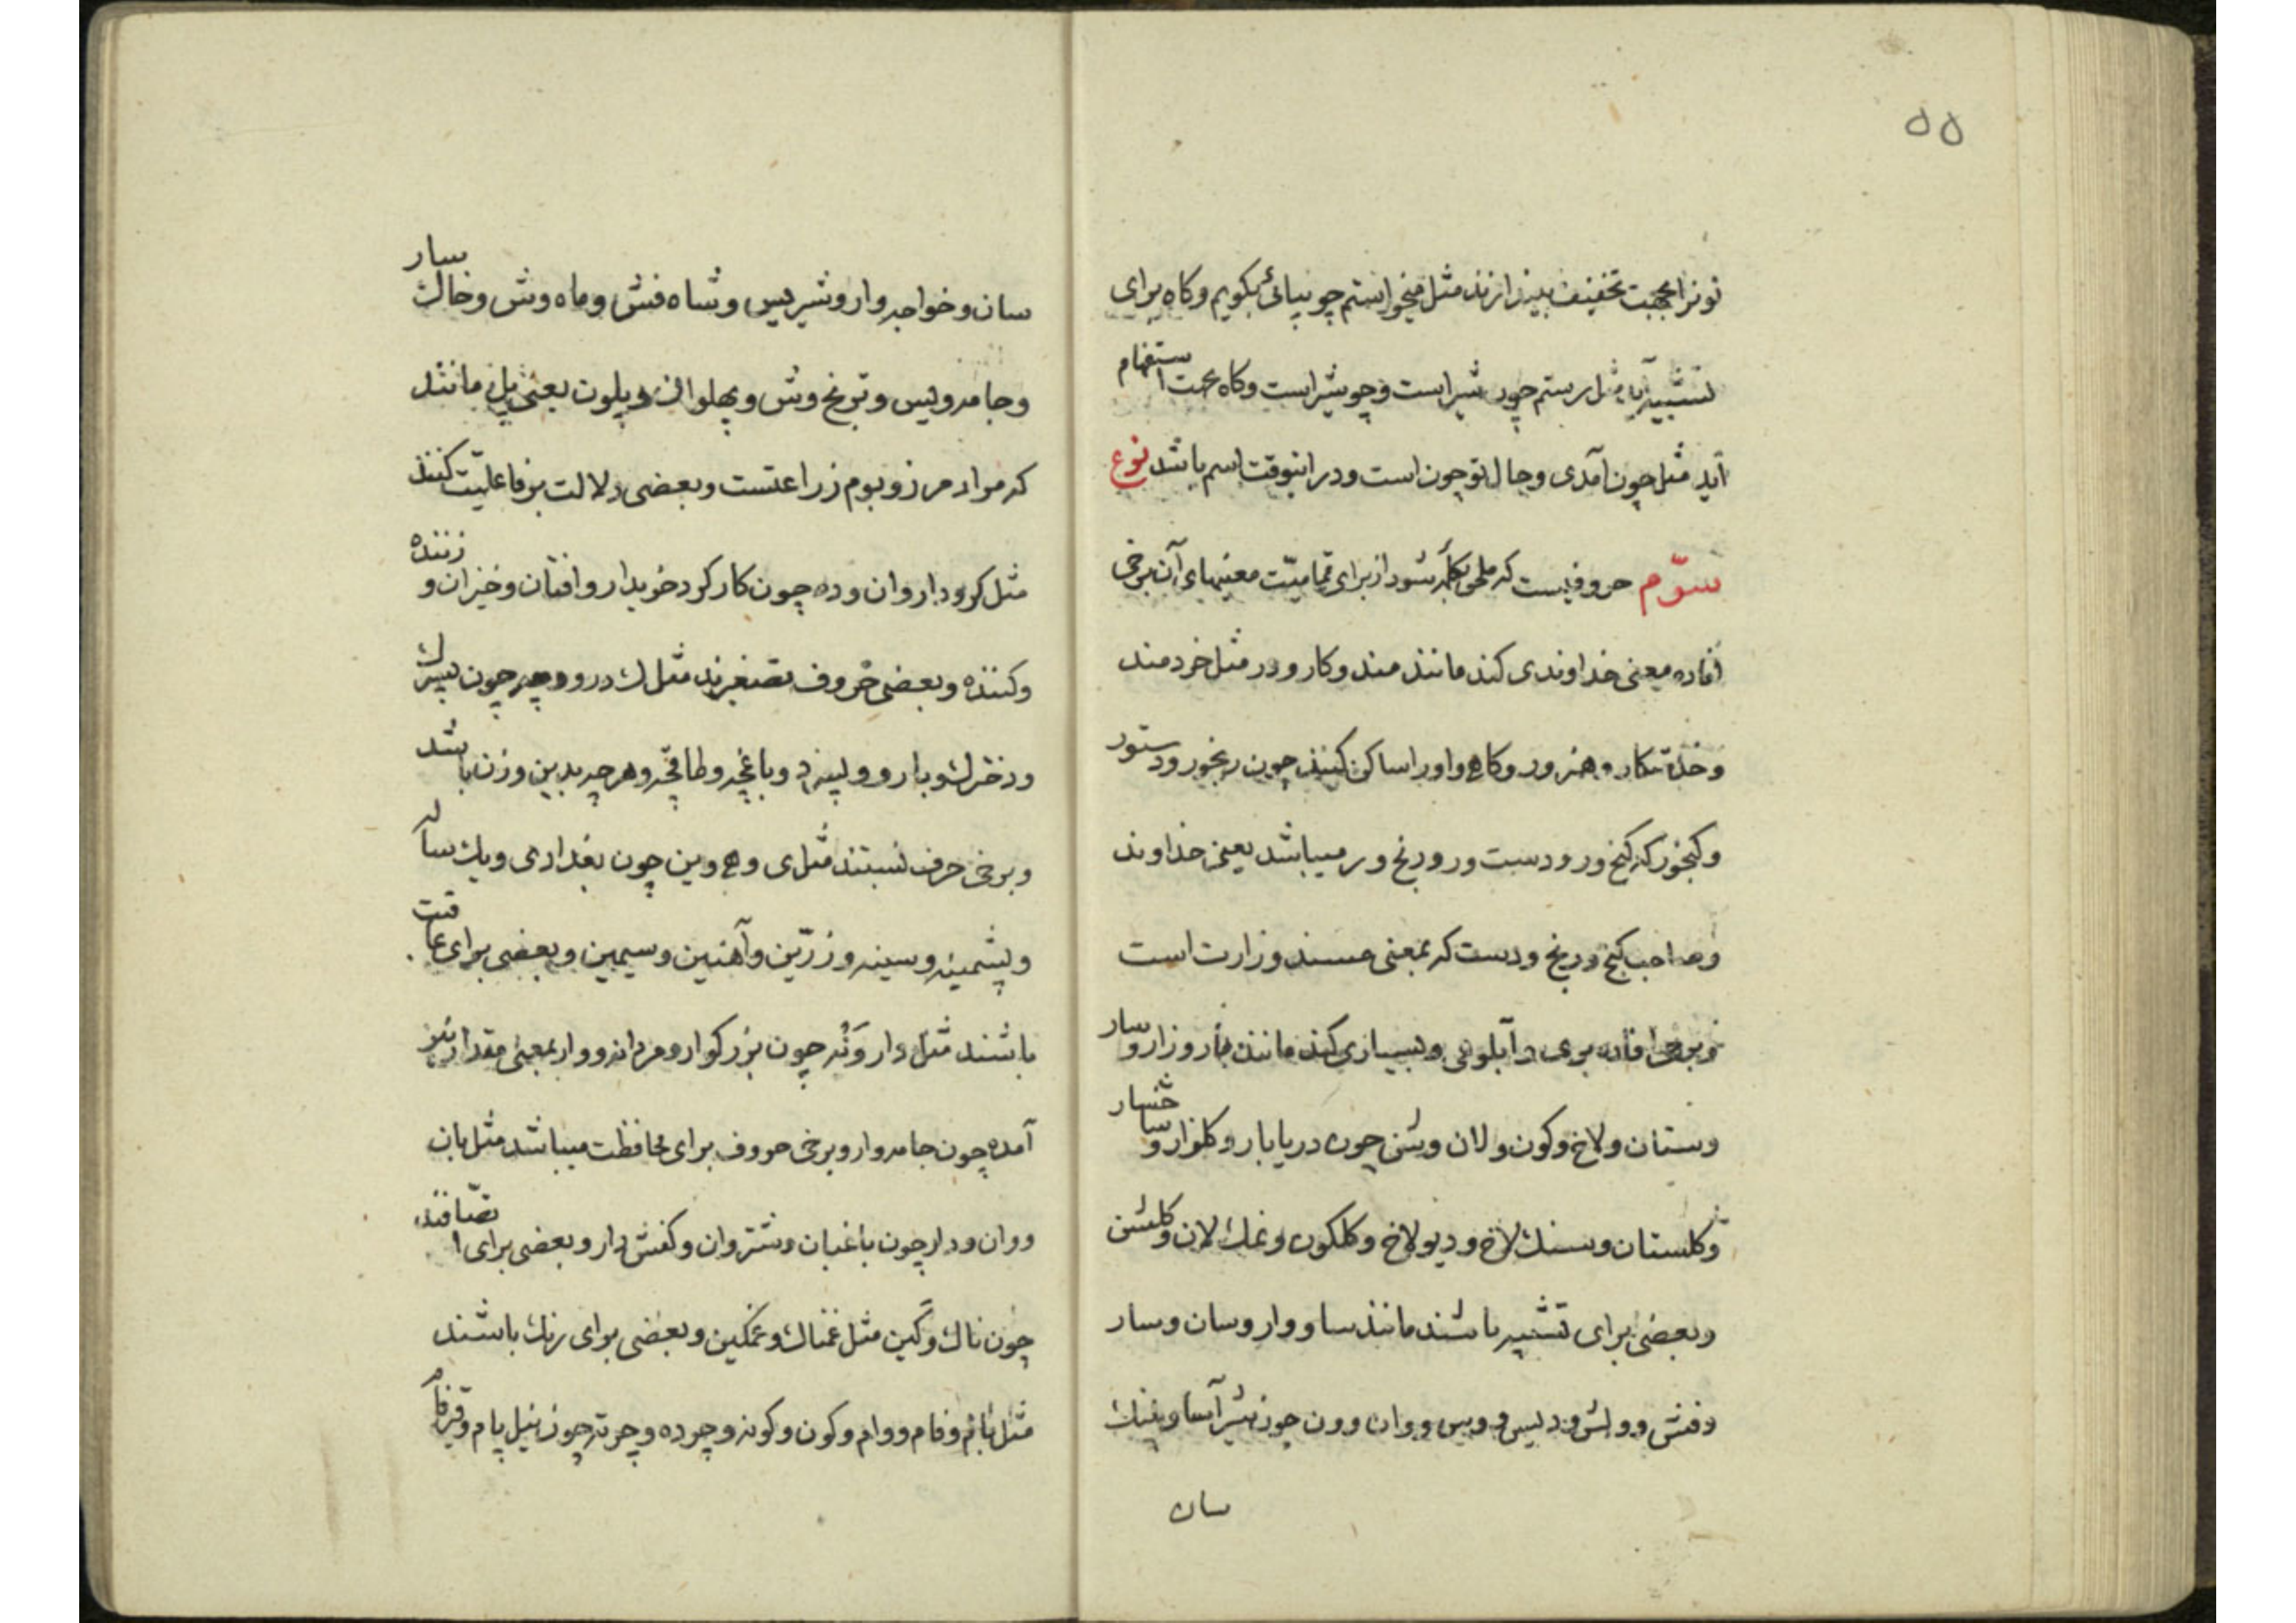 ۵۵
نونرا بجهت تخفیف بیندازند مثل میخواستم چو بیائی بگویم وکاه برای
تشبیه آید مثل رستم چون شیر است و چو شیر است وکاه بجهت استفهام
آید مثل چون آمدی و حال تو چون است و در اینوقت اسم باشد نوع
سوّم حروفیست که ملحق بکلمه شود از برای تمامیّت معنیهای آن برخی
افاده معنی خداوندی کند مانند مند وکار و ور مثل خردمند
و خدمتکار و هنرور وکاهی واو را ساکن کنند چون رنجور و دستور
وکنجور که کنج ور و دست ور و رنج ور میباشد یعنی خداوند
وصاحب کنج و رنج و دست که بمعنی مسند وزارت است
و برخی افاده بری و آبلوهی و بسیاری کند مانند بار و زار و سار
وستان و لاخ وکون و لان وشن چون دریابار وکلزار و شاخسار
وکلستان وسنك لاخ و دیولاخ وکلکون و نمك لان وکلشن
وبعضی برای تشبیه باشند مانند سا و وار وسان وسار
وفش و وش و دیس و ویس و وان و ون چون شیر آسا و پیك
سان
سان و خواجه وار و شیر دیس و شاه فش و ماه وش و خاك سار
وجامه ویس و ترنج وش و پهلوان و پلون یعنی پل مانند
که مراد مرز و بوم زراعتست وبعضی دلالت بر فاعلیّت کنند
مثل کر و دار و ان و ده چون کارکر و خریدار و افتان و خیزان و زننده
وکننده وبعضی حروف تصغیرند مثل ك و رو و چه چون پسرك
ودخترك و یارو و پسرو و باغچه و طاقچه و هر چه بدین وزن باشد
وبرخی حرف نسبتند مثل ی و ه و ین چون بغدادی و یك ساله
وپشمینه و سینه و زرّین و آهنین و سیمین و بعضی برای عاقبت
باشند مثل وار و نه چون بزرکوار و مردانه و وار بمعنی مقدار نیز
آمده چون جامه وار و برخی حروف برای محافظت میباشد مثل بان
ووان و دار چون باغبان و شتروان وکفش دار و بعضی برای اتّصافند
چون ناك وکین مثل غمناك و غمکین و بعضی برای رنك باشند
مثل پام و فام و وام وکون وکونه و چرده و چرته چون نیل پام و قیرفام